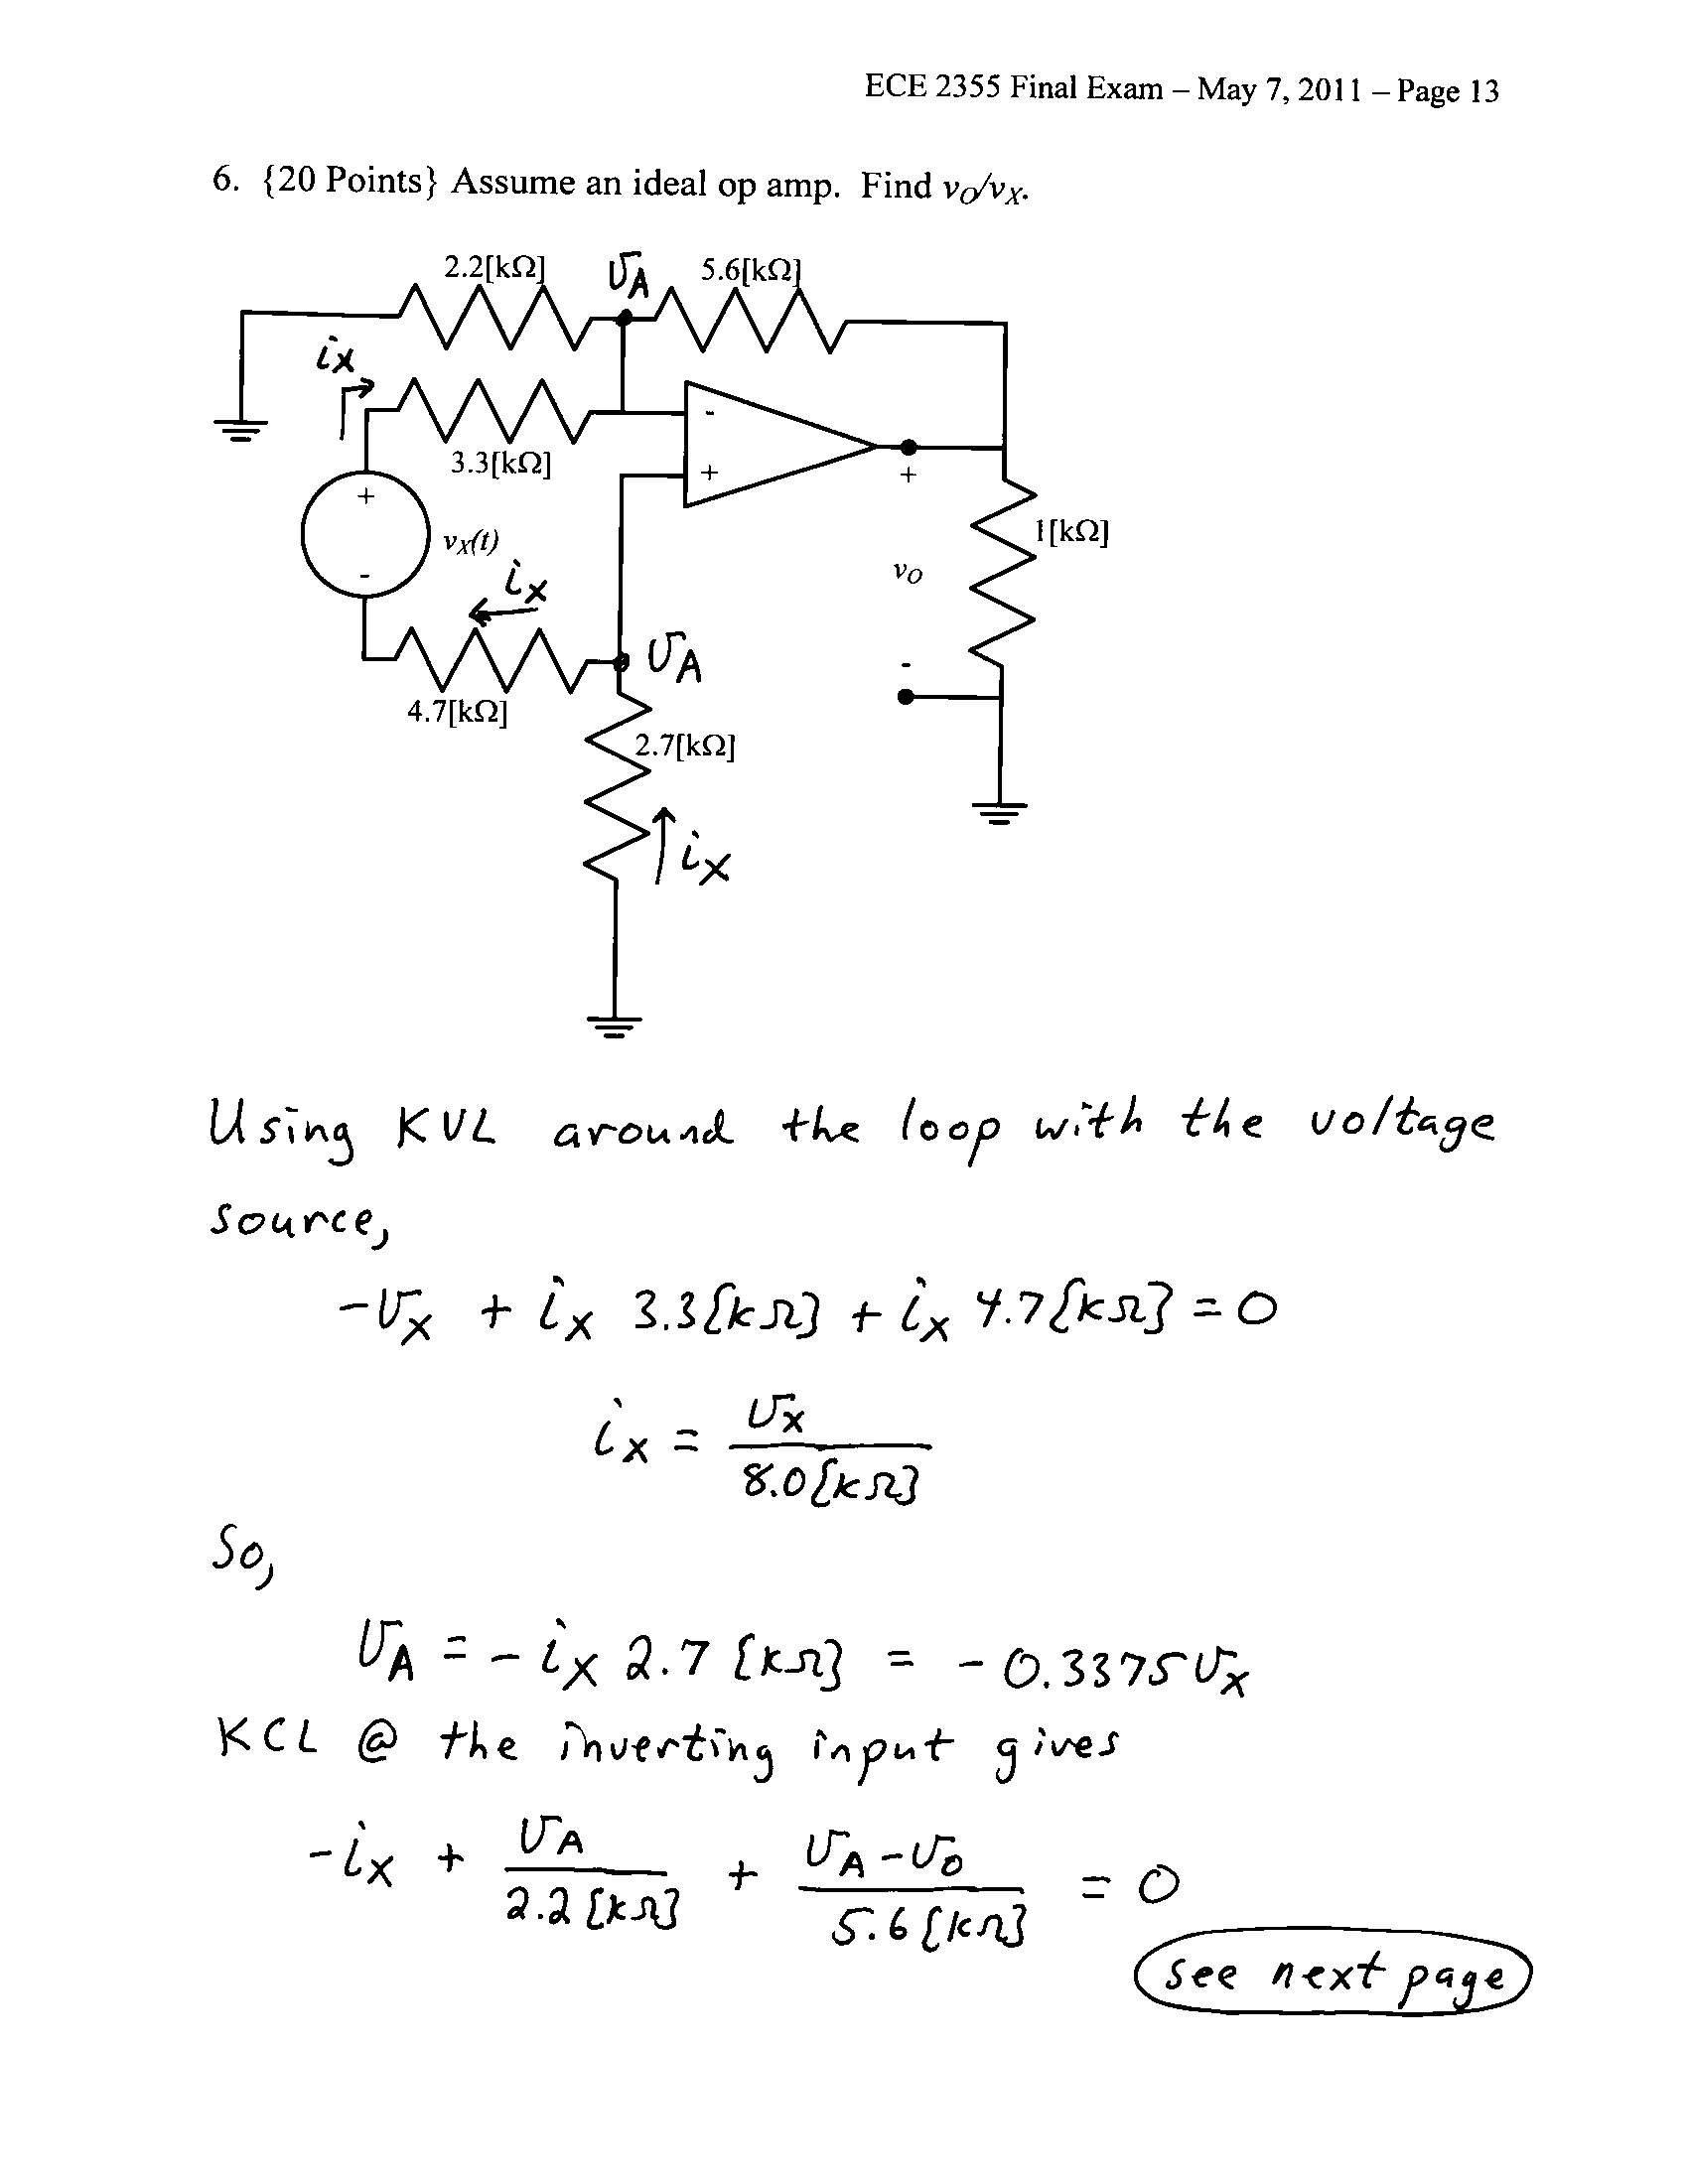 ECE 2355 Final Exam – May 7, 2011 – Page 13
6. {20 Points} Assume an ideal op amp. Find vO/vX.
2.2[kΩ]
vA
5.6[kΩ]
iX
-
3.3[kΩ]
+
+
+
1[kΩ]
vX(t)
vO
-
iX
vA
-
4.7[kΩ]
2.7[kΩ]
iX
Using KVL around the loop with the voltage
source,
-vX + iX 3.3[kΩ] + iX 4.7[kΩ] = 0
iX = vX / 8.0[kΩ]
So,
vA = - iX 2.7 [kΩ] = - 0.3375 vX
KCL @ the inverting input gives
-iX + vA / 2.2 [kΩ] + vA - vO / 5.6 [kΩ] = 0
see next page